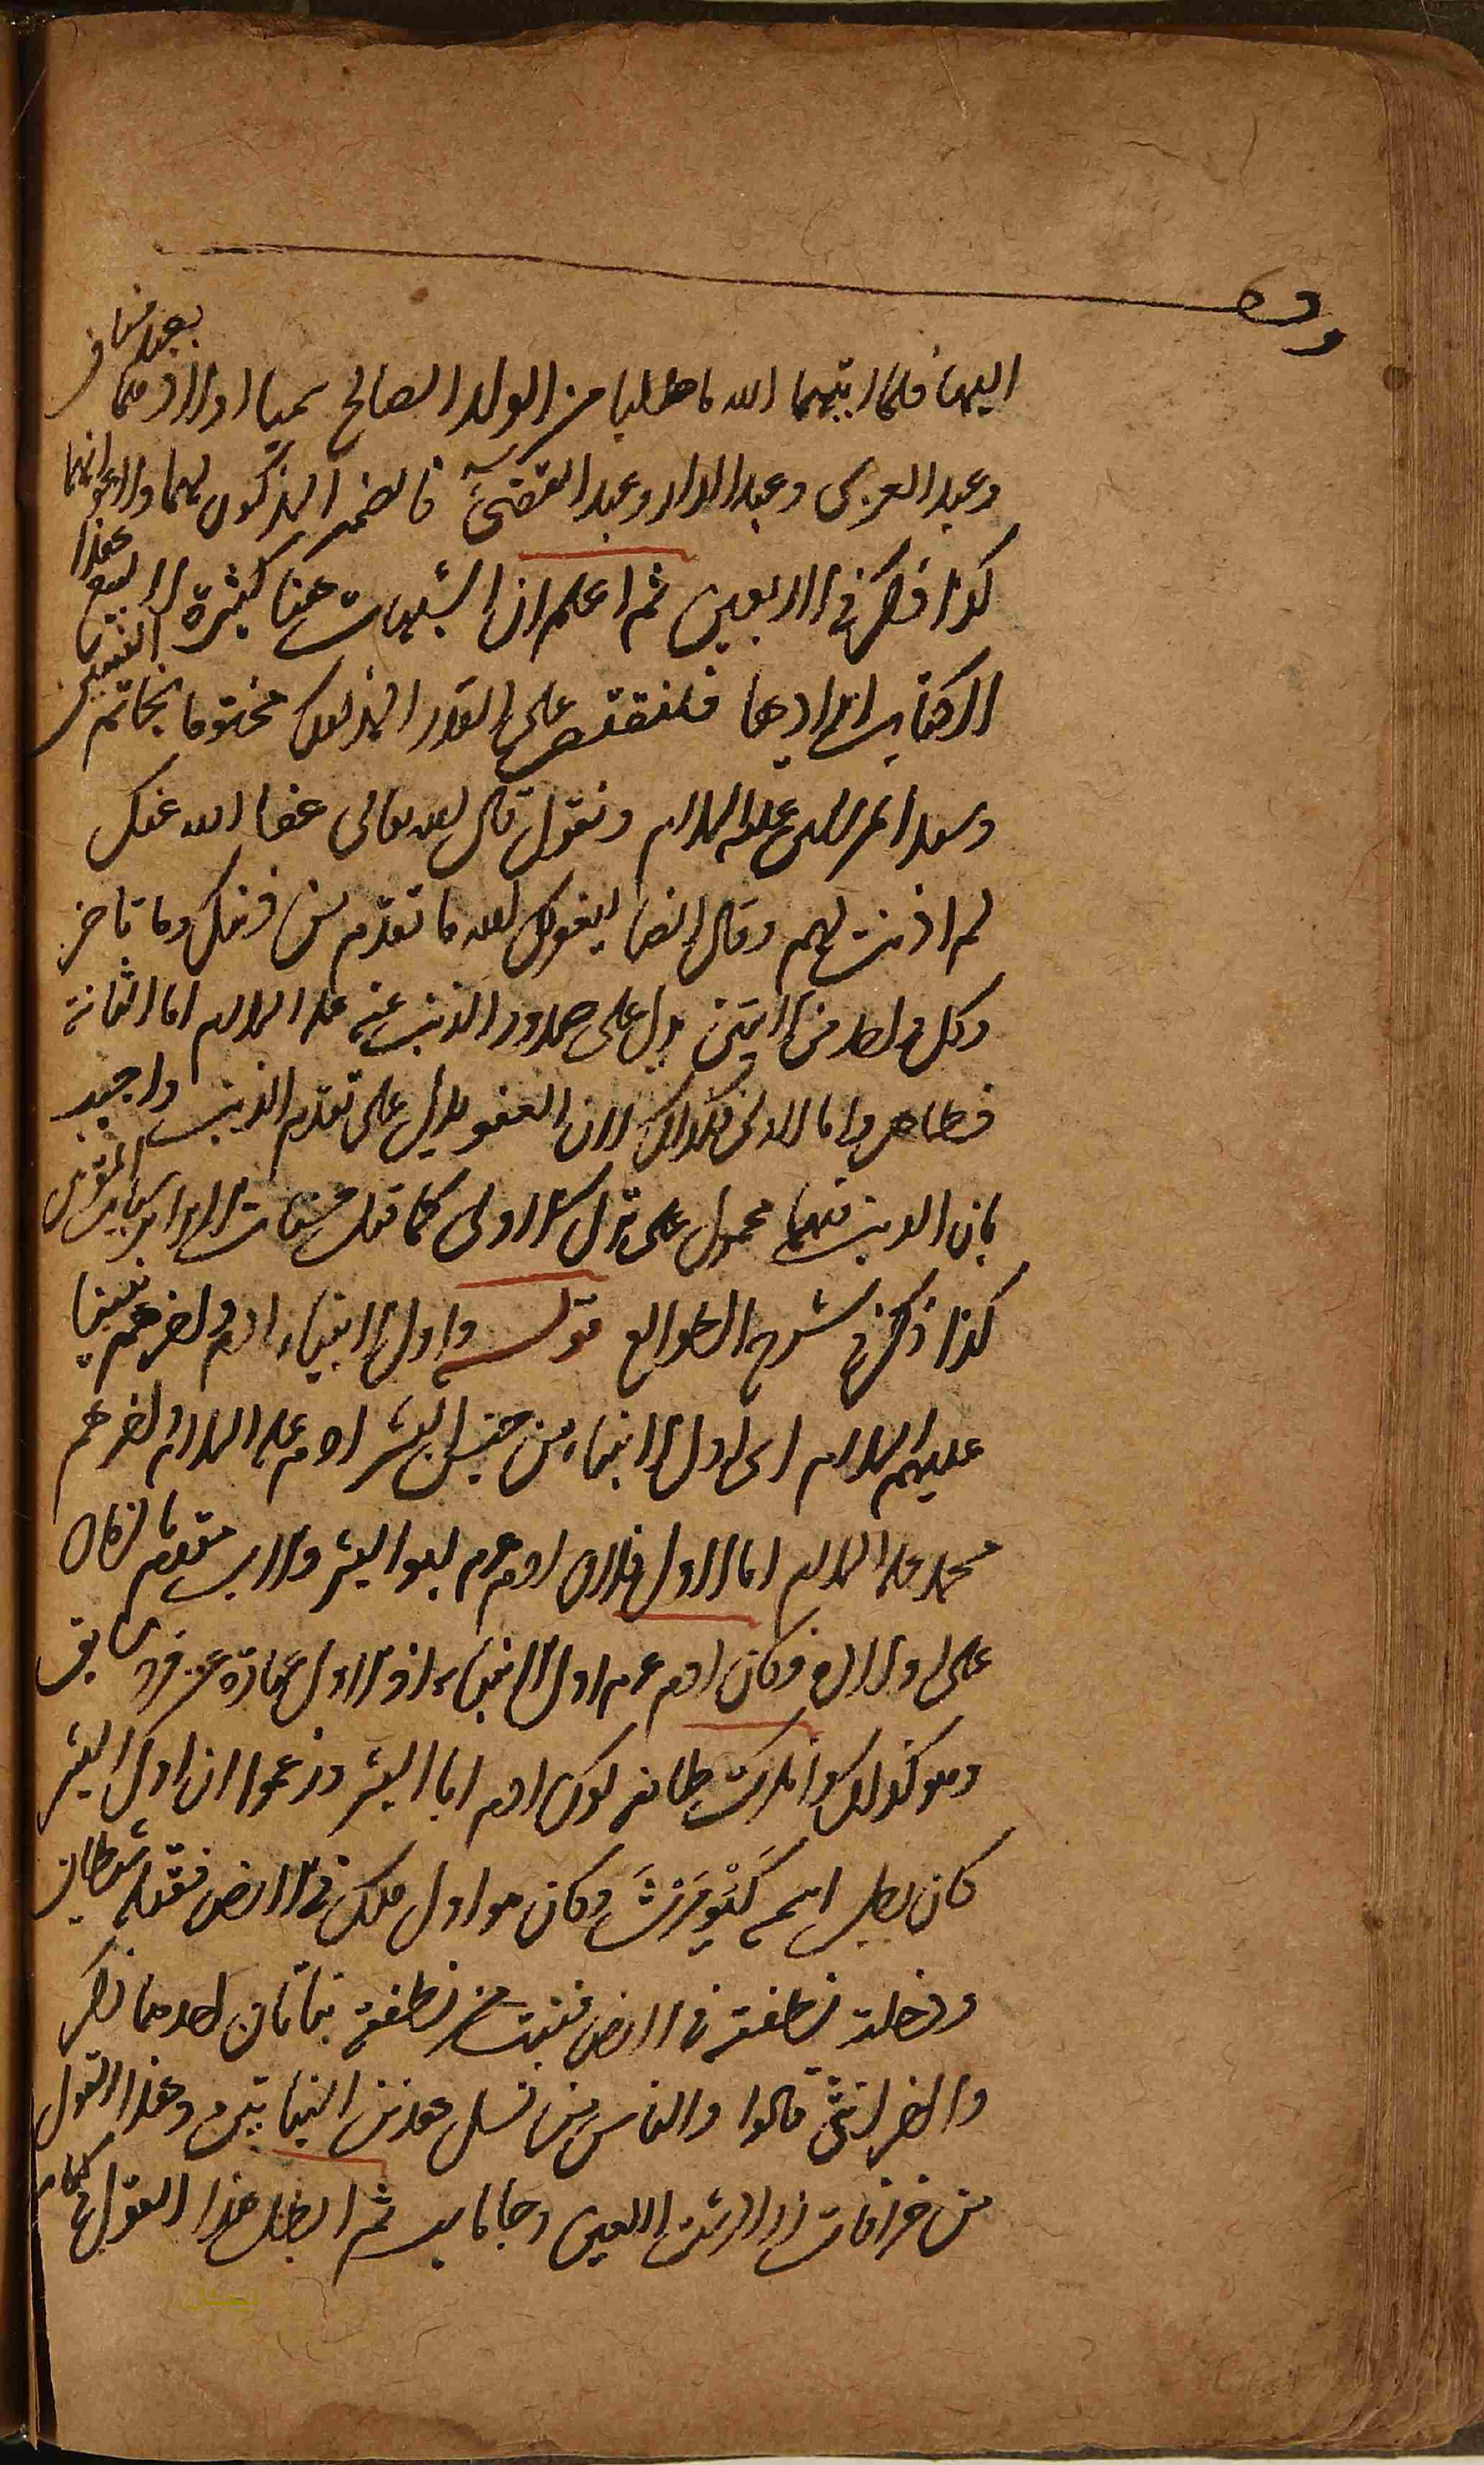 اليها فلما آتيهما الله ما طلبا من الولد الصالح سميا اولادهما بعبد مناف
وعبد العزى وعبد الدار وعبد القصى فالضمير المذكور لهما ولاعقابهما
كذا ذكر في الاربعين ثم اعلم ان الشبهات هنا كثيرة لا يسع هذا
الكتاب ايرادها فلنقتصر على القدر المذكور مختوما بخاتم النبيين
وسيد المرسلين عليه السلام ونقول قال الله تعالى عفا الله عنك
لم اذنت لهم وقال ايضا ليغفر لك الله ما تقدم من ذنبك وما تاخر
وكل واحد من الايتين يدل على صدور الذنب عنه عليه السلام اما الثانية
فظاهر واما الاولى فكذلك لان العفو يدل على تقدم الذنب واجيب
بان الذنب فيهما محمول على ترك الاولى كما قيل حسنات الابرار سيئات المقربين
كذا ذكر في شرح الطوالع قوله واول الانبياء ادم واخرهم نبينا
عليهم السلام اى اول الانبياء من جنس البشر ادم عليه السلام واخرهم
محمد عليه السلام اما الاول فلان ادم عم ابو البشر والاب مقدم بالزمان
على اولاده فكان ادم عم اول الانبياء اذ الاول عبارة عن فرد سابق
وهو كذلك وانكرت طائفة كون ادم ابا البشر وزعموا ان اول البشر
كان رجل اسمه كَيُومَرْثَ وكان هو اول ملك في الارض فقتله شيطان
ودخلت نطفته في الارض فنبت من نطفته نباتان احدهما ذكر
والاخر انثى قالوا والناس من نسل هذين النباتين وهذا القول
من خرافات زرادشت اللعين وجاماسب ثم ابطل هذا القول